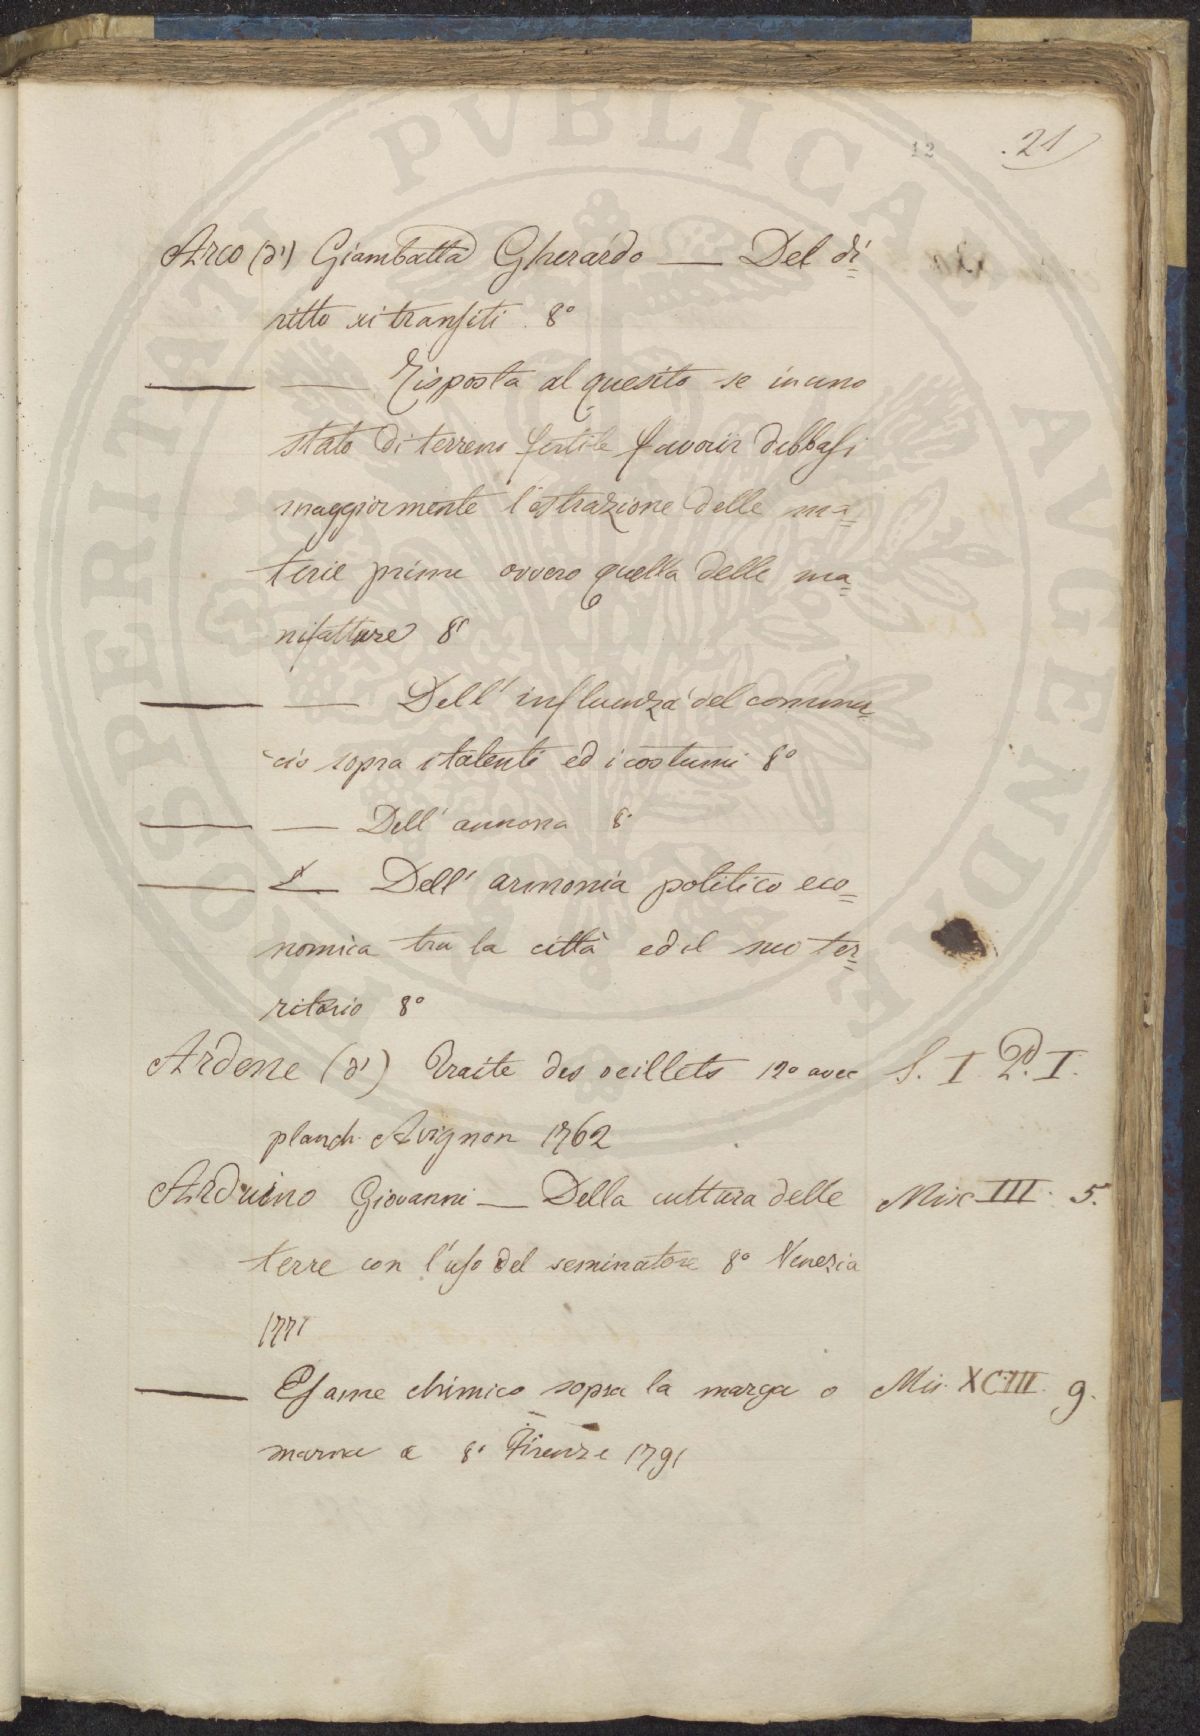 12 .21
Arco (d') Giambatta Gherardo — Del di=
ritto ai transiti. 8°
— — Risposta al quesito se in uno
stato di terreno fertile favorir debbasi
maggiormente l'estrazione delle ma=
terie prime ovvero quella delle ma=
nifatture 8°
— — Dell' influenza del commer=
cio sopra i talenti ed i costumi 8°
— — Dell' annona 8°
— — Dell' armonia politico eco=
nomica tra la città ed il suo ter=
ritorio 8°
Ardene (d') Traite des oeillets 12° avec S. I P.d I.
planch. Avignon 1762
Arduino Giovanni — Della cultura delle Misc III. 5.
terre con l'uso del seminatore 8° Venezia
1771
— Esame chimico sopra la marga o Mis. XCIII. 9.
marna 8° Firenze 1791
PROSPERITATI PVBLICAE AVGENDAE